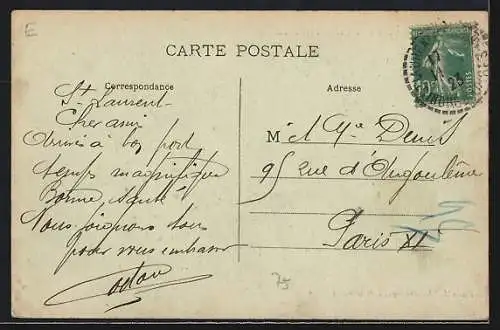 E
CARTE POSTALE
Correspondance
St Laurent
Cher ami
Arrivés à bon port
temps magnifique
Bonne santé
Nous joignons tous
pour vous embrasser
Adresse
M r et Me Denis
95 rue d'Angoulême
Paris XI
75